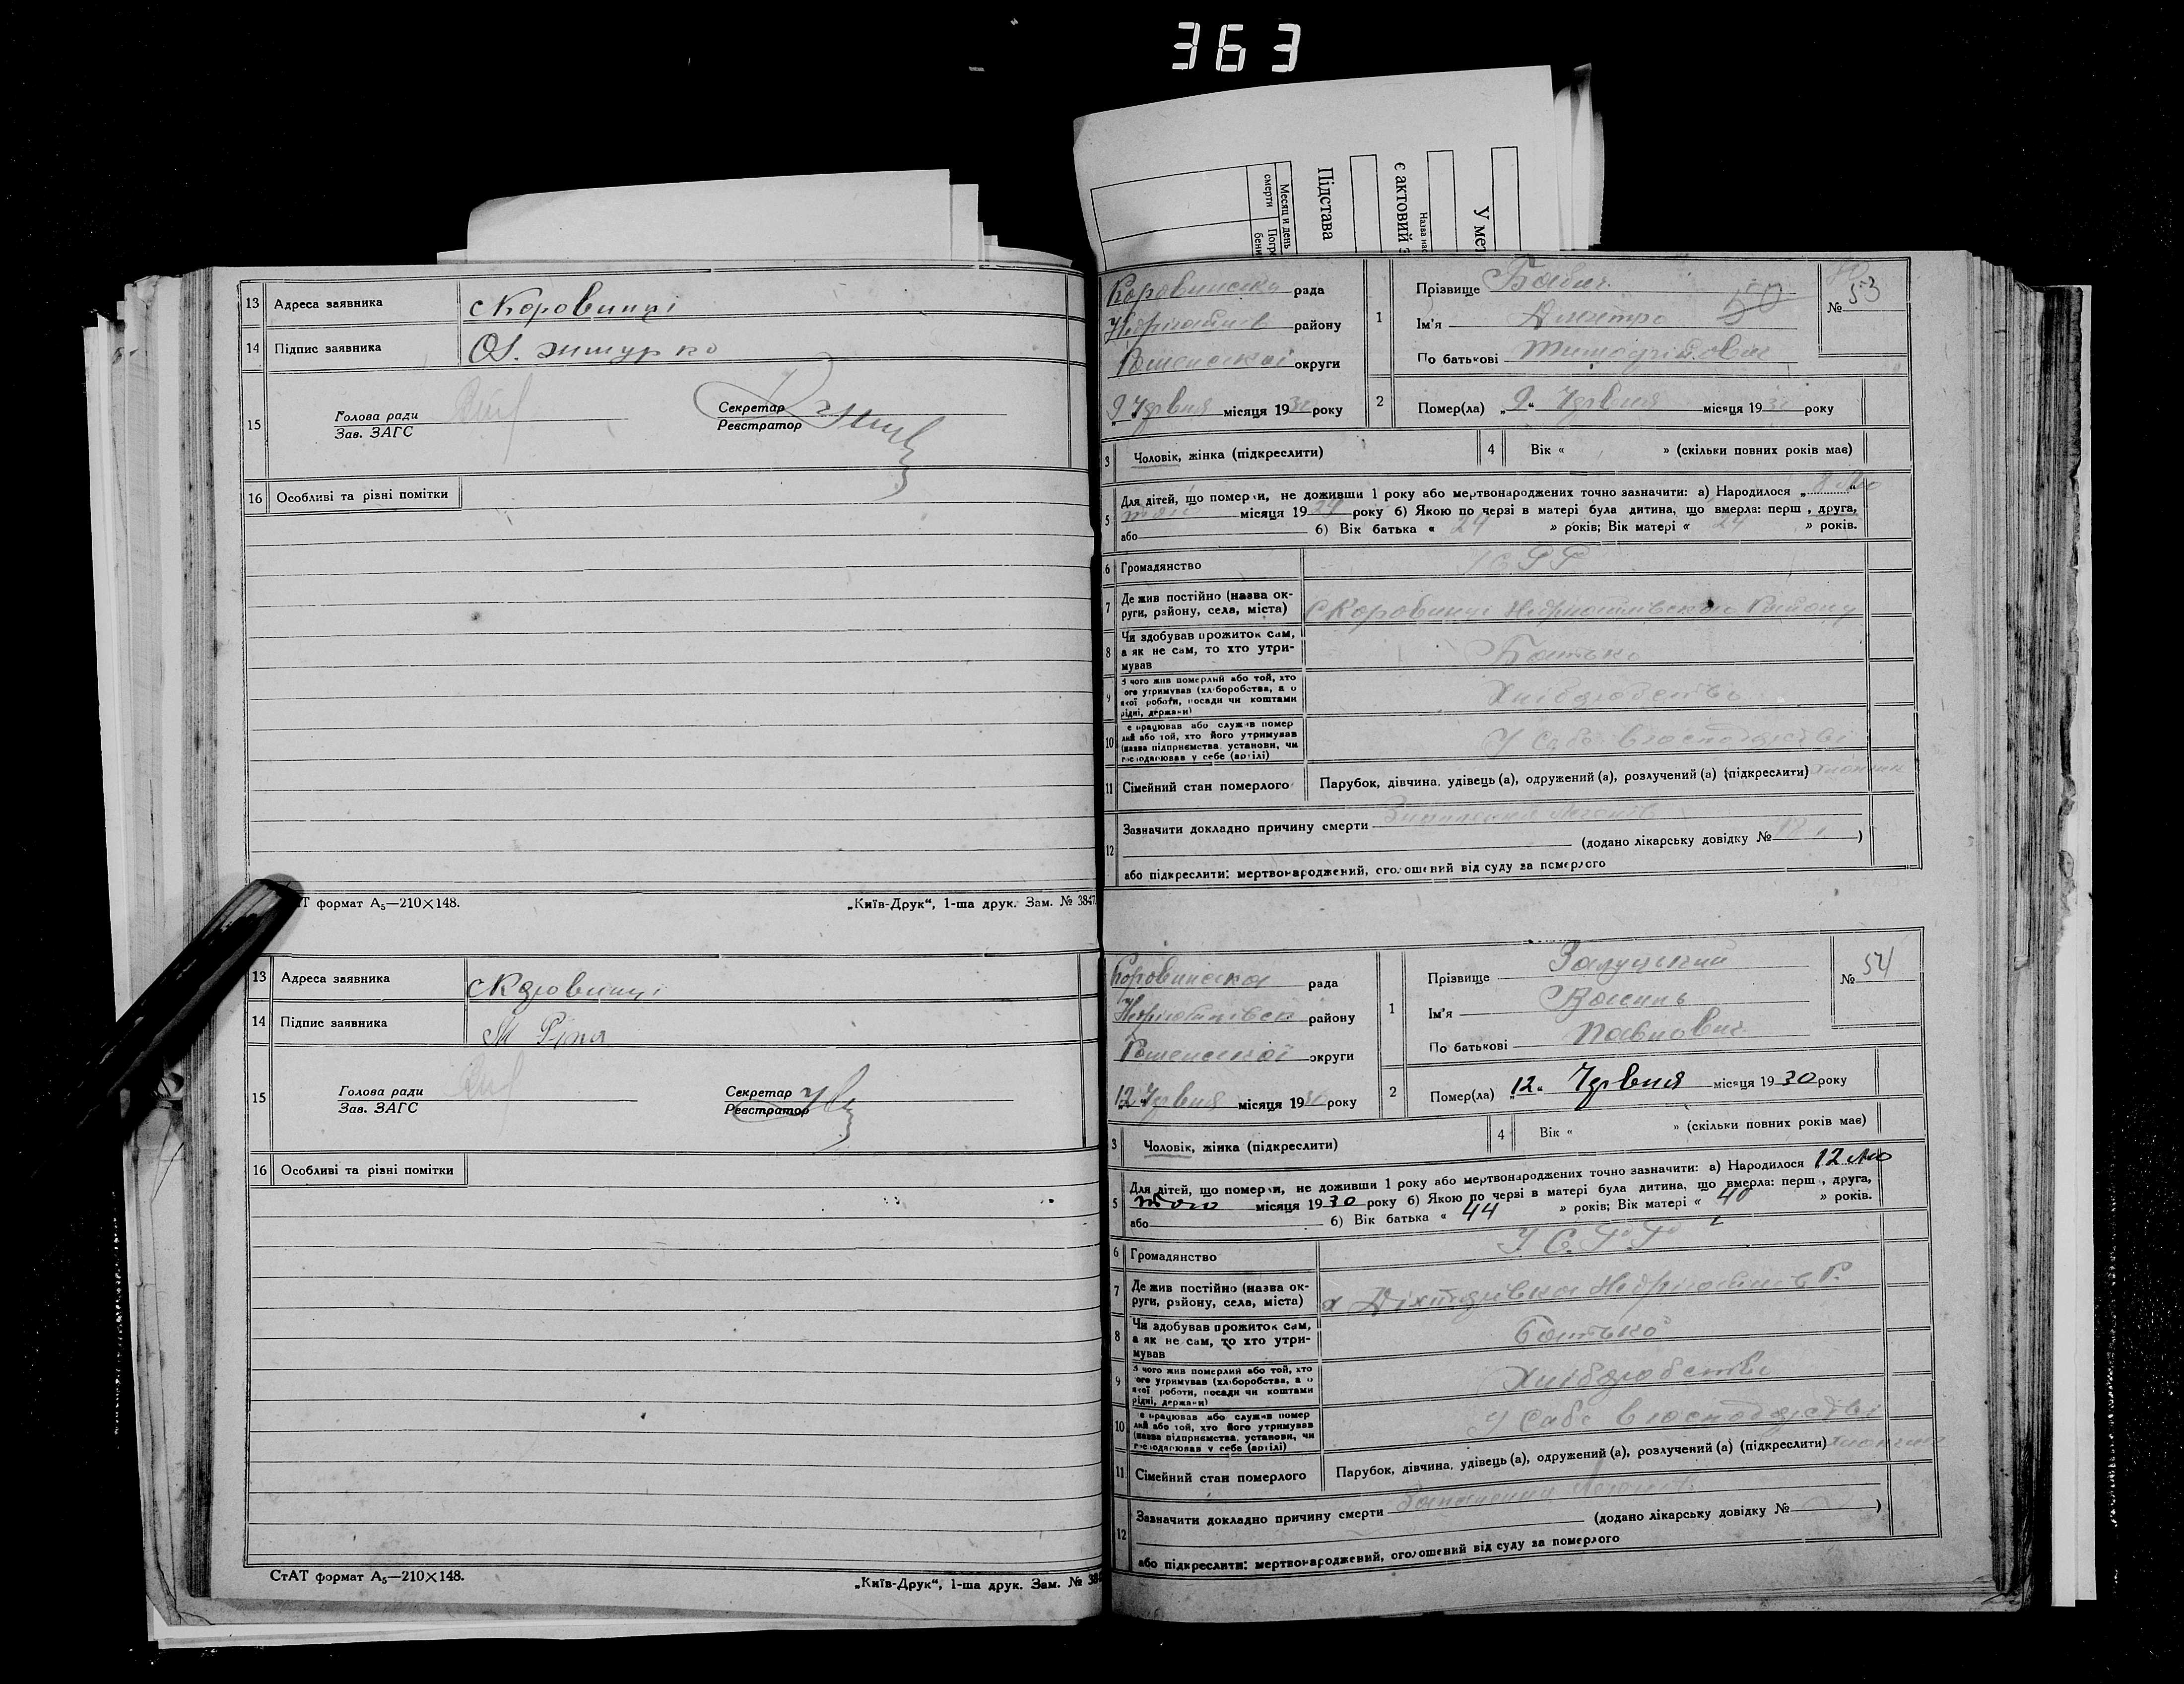 363
Месяц и день
смерти
Підстава
є актовий
У мет
13 Адреса заявника с Коровинці
14 Підпис заявника
15 Голова ради
Зав. ЗАГС
Секретар
Реєстратор
16 Особливі та різні помітки
Т формат А₅—210×148.
„Київ-Друк“, 1-ша друк. Зам. № 3847
13 Адреса заявника с Коровинці
14 Підпис заявника
15 Голова ради
Зав. ЗАГС
Секретар
Реєстратор
16 Особливі та різні помітки
СтАТ формат А₅—210×148.
„Київ-Друк“, 1-ша друк. Зам. № 384
Коровинська рада
району
Роменської округи
9 Червня місяця 1930 року
1 Прізвище
Ім'я Дмитро 50
По батькові
№ 53
2 Помер(ла) „9“ Червня місяця 1930 року
3 Чоловік, жінка (підкреслити)
4 Вік « » (скільки повних років має)
5 Для дітей, що померли, не доживши 1 року або мертвонароджених точно зазначити: а) Народилося „
місяця 1929 року б) Якою по черзі в матері була дитина, що вмерла: перш , друга,
або б) Вік батька « 24 » років; Вік матері « 24 » років.
6 Громадянство УСРР
7 Де жив постійно (назва ок-
руги, району, села, міста) с Коровинці Недригайлівського Району
8 Чи здобував прожиток сам,
а як не сам, то хто утри-
мував Батько
9 З чого жив померлий або той, хто
ого утримував (хліборобства, а о
якої роботи, посади чи коштами
рідні, держави) Хліборобство
10 е працював або служив помер
лий або той, хто його утримував
(назва підприємства, установи, чи
господарював у себе (артілі) У себе в господарстві
11 Сімейний стан померлого Парубок, дівчина, удівець (а), одружений (а), розлучений (а) (підкреслити) хлопчик
12 Зазначити докладно причину смерти
(додано лікарську довідку № )
або підкреслити: мертвонароджений, оголошений від суду за померлого
Коровинська рада
району
Роменської округи
12 Червня місяця 1930 року
1 Прізвище Залуцький
Ім'я Василь
По батькові Павлович
№ 54
2 Помер(ла) „12“ Червня місяця 1930 року
3 Чоловік, жінка (підкреслити)
4 Вік « » (скільки повних років має)
5 Для дітей, що померли, не доживши 1 року або мертвонароджених точно зазначити: а) Народилося 12 Лю
того місяця 1930 року б) Якою по черзі в матері була дитина, що вмерла: перш , друга,
або б) Вік батька « 44 » років; Вік матері « 40 » років.
6 Громадянство У.С.Р.Р
7 Де жив постійно (назва ок-
руги, району, села, міста)
8 Чи здобував прожиток сам,
а як не сам, то хто утри-
мував Батько
9 З чого жив померлий або той, хто
ого утримував (хліборобства, а о
якої роботи, посади чи коштами
рідні, держави) Хліборобство
10 е працював або служив помер
лий або той, хто його утримував
(назва підприємства, установи, чи
господарював у себе (артілі) У себе в господарстві
11 Сімейний стан померлого Парубок, дівчина, удівець (а), одружений (а), розлучений (а) (підкреслити) хлопчик
12 Зазначити докладно причину смерти Запалення легенів
(додано лікарську довідку № )
або підкреслити: мертвонароджений, оголошений від суду за померлого